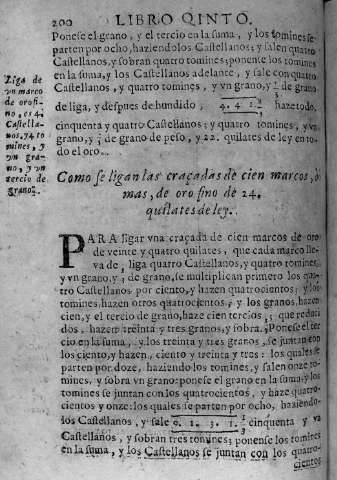 200 LIBRO QINTO.
Ponese el grano, y el tercio en la suma, y los tomines se
parten por ocho, haziendolos Castellanos; y salen quatro
Castellanos, y sobran quatro tomines; ponense los tomines
en la suma, y los Castellanos adelante, y sale con quatro
Castellanos, y quatro tomines, y vn grano, y 1/3 de grano
de liga, y despues de hundido, 4. 4. 1. 1/3 haze todo,
cinquenta y quatro Castellanos: y quatro tomines, y vn
grano, y 1/3 de grano de peso, y 22. quilates de ley en to-
do el oro.
Liga de
vn marco
de orofi-
no, es 4.
Castella-
nos, y 4 to
mines, y
vn gra-
no, y vn
tercio de
grano.
Como se ligan las craçadas de cien marcos, ò
mas, de oro fino de 24.
quilates de ley.
PARA ligar vna craçada de cien marcos de oro
de veinte y quatro quilates, que cada marco lle-
va de liga quatro Castellanos, y quatro tomines,
y vn grano, y 1/3 de grano, se multiplican primero los qua-
tro Castellanos por ciento, y hazen quatrocientos; y los
tomines hazen otros quatrocientos, y los granos, hazen
cien, y el tercio de grano, haze cien tercios, que reduci-
dos, hazen treinta y tres granos, y sobra 1/3 Ponese el ter
cio en la suma, y los treinta y tres granos, se juntan con
los ciento, y hazen, ciento y treinta y tres: los quales se
parten por doze, haziendolos tomines, y salen onze to-
mines, y sobra vn grano: ponese el grano en la suma, y los
tomines se juntan con los quatrocientos, y haze quatro-
cientos y onze: los quales se parten por ocho, haziendo-
los Castellanos, y sale 0. 1. 3. 1. 1/3 cinquenta y vn
Castellanos, y sobran tres tomines; ponense los tomines
en la suma, y los Castellanos se juntan con los quatro-
cientos